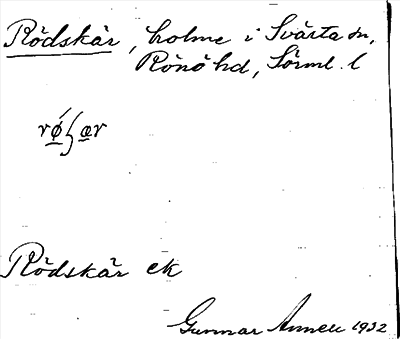 Rödskär, holme i Svärta sn,
Rönö hd, Sörml. l
Rödskär ek
Gunnar 1932